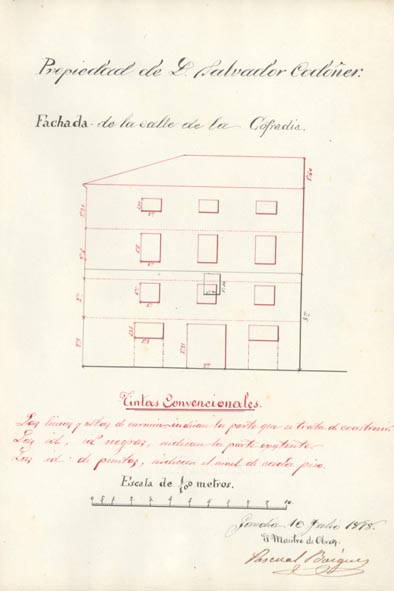 Propiedad de D. Salvador Codoñer.
Fachada de la calle de la Cofradia.
Tintas Convencionales.
Las lineas y cotas de carmin indican la parte que se trata de construir.
Las id. id negras, indican la parte existente
Las id. de puntos, indican el nivel de cada piso.
Escala de 1/100 metros.
Gandia 10 Julio 1898.
El Maestro de Obras,
Pascual